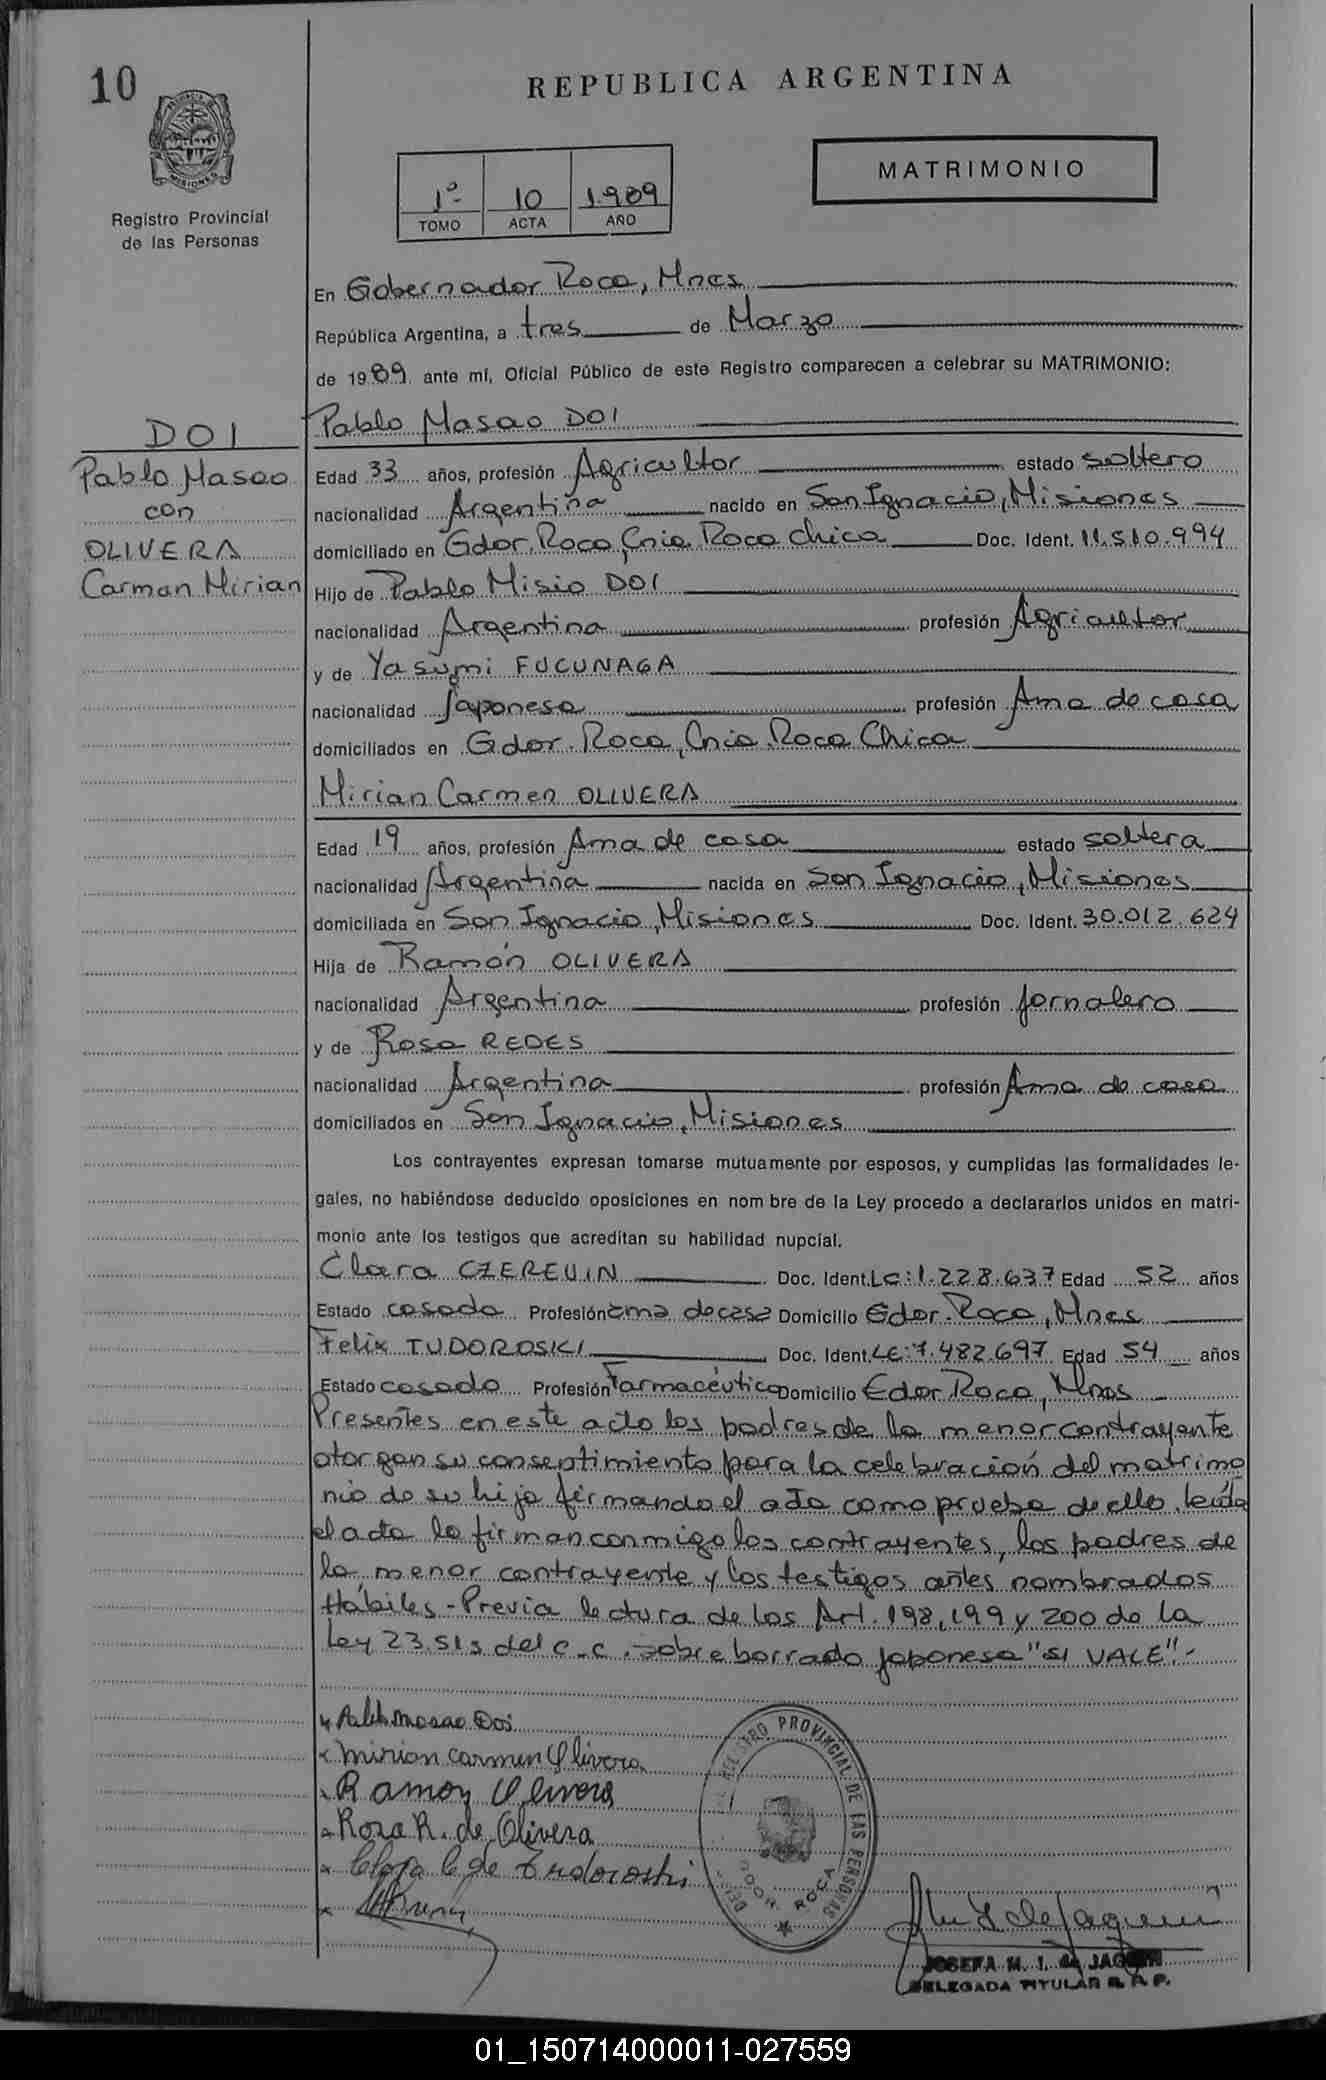 10
REPUBLICA ARGENTINA
PROVINCIA DE MISIONES
Registro Provincial
de las Personas
1º 10 1.989
TOMO ACTA AÑO
MATRIMONIO
En Gobernador Roca, Mnes
República Argentina, a tres de Marzo
de 1989 ante mí, Oficial Público de este Registro comparecen a celebrar su MATRIMONIO:
DOI
Pablo Masao
con
OLIVERA
Carman Mirian
Pablo Masao DOI
Edad 33 años, profesión Agricultor estado soltero
nacionalidad Argentina nacido en San Ignacio, Misiones
domiciliado en Gdor. Roca, Cnia Roca Chica Doc. Ident. 11.510.994
Hijo de Pablo Misio DOI
nacionalidad Argentina profesión Agricultor
y de Yasumi FUCUNAGA
nacionalidad Japonesa profesión Ama de casa
domiciliados en Gdor. Roca, Cnia. Roca Chica
Mirian Carmen OLIVERA
Edad 19 años, profesión Ama de casa estado soltera
nacionalidad Argentina nacida en San Ignacio, Misiones
domiciliada en San Ignacio, Misiones Doc. Ident. 30.012.624
Hija de Ramón OLIVERA
nacionalidad Argentina profesión Jornalero
y de Rosa REDES
nacionalidad Argentina profesión Ama de casa
domiciliados en San Ignacio, Misiones
Los contrayentes expresan tomarse mutuamente por esposos, y cumplidas las formalidades le-
gales, no habiéndose deducido oposiciones en nom bre de la Ley procedo a declararlos unidos en matri-
monio ante los testigos que acreditan su habilidad nupcial.
Clara CZEREVIN Doc. Ident. LC: 1.228.637 Edad 52 años
Estado casada Profesión ama de casa Domicilio Gdor. Roca, Mnes
Felix TUDOROSKI Doc. Ident. LE: 7.482.697 Edad 54 años
Estado casado Profesión Farmacéutico Domicilio Gdor Roca, Mnes
Presentes en este acto los padres de la menor contrayente
otorgan su consentimiento para la celebración del matrimo
nio de su hija firmando el acta como prueba de ello. Leída
el acta la firman conmigo los contrayentes, los padres de
la menor contrayente y los testigos antes nombrados
Hábiles - Previa lectura de los Art. 198, 199 y 200 de la
Ley 23.515 del C.C. sobre borrado japonesa "SI VALE" -
Pablo Masao Doi
Mirian Carmen Olivera
Ramon Olivera
Rosa R. de Olivera
Clara C de Tudoroski
REGISTRO PROVINCIAL DE LAS PERSONAS
GDOR. ROCA
JOSEFA M. I. de JAQUIN
DELEGADA TITULAR R. P. P.
01_150714000011-027559